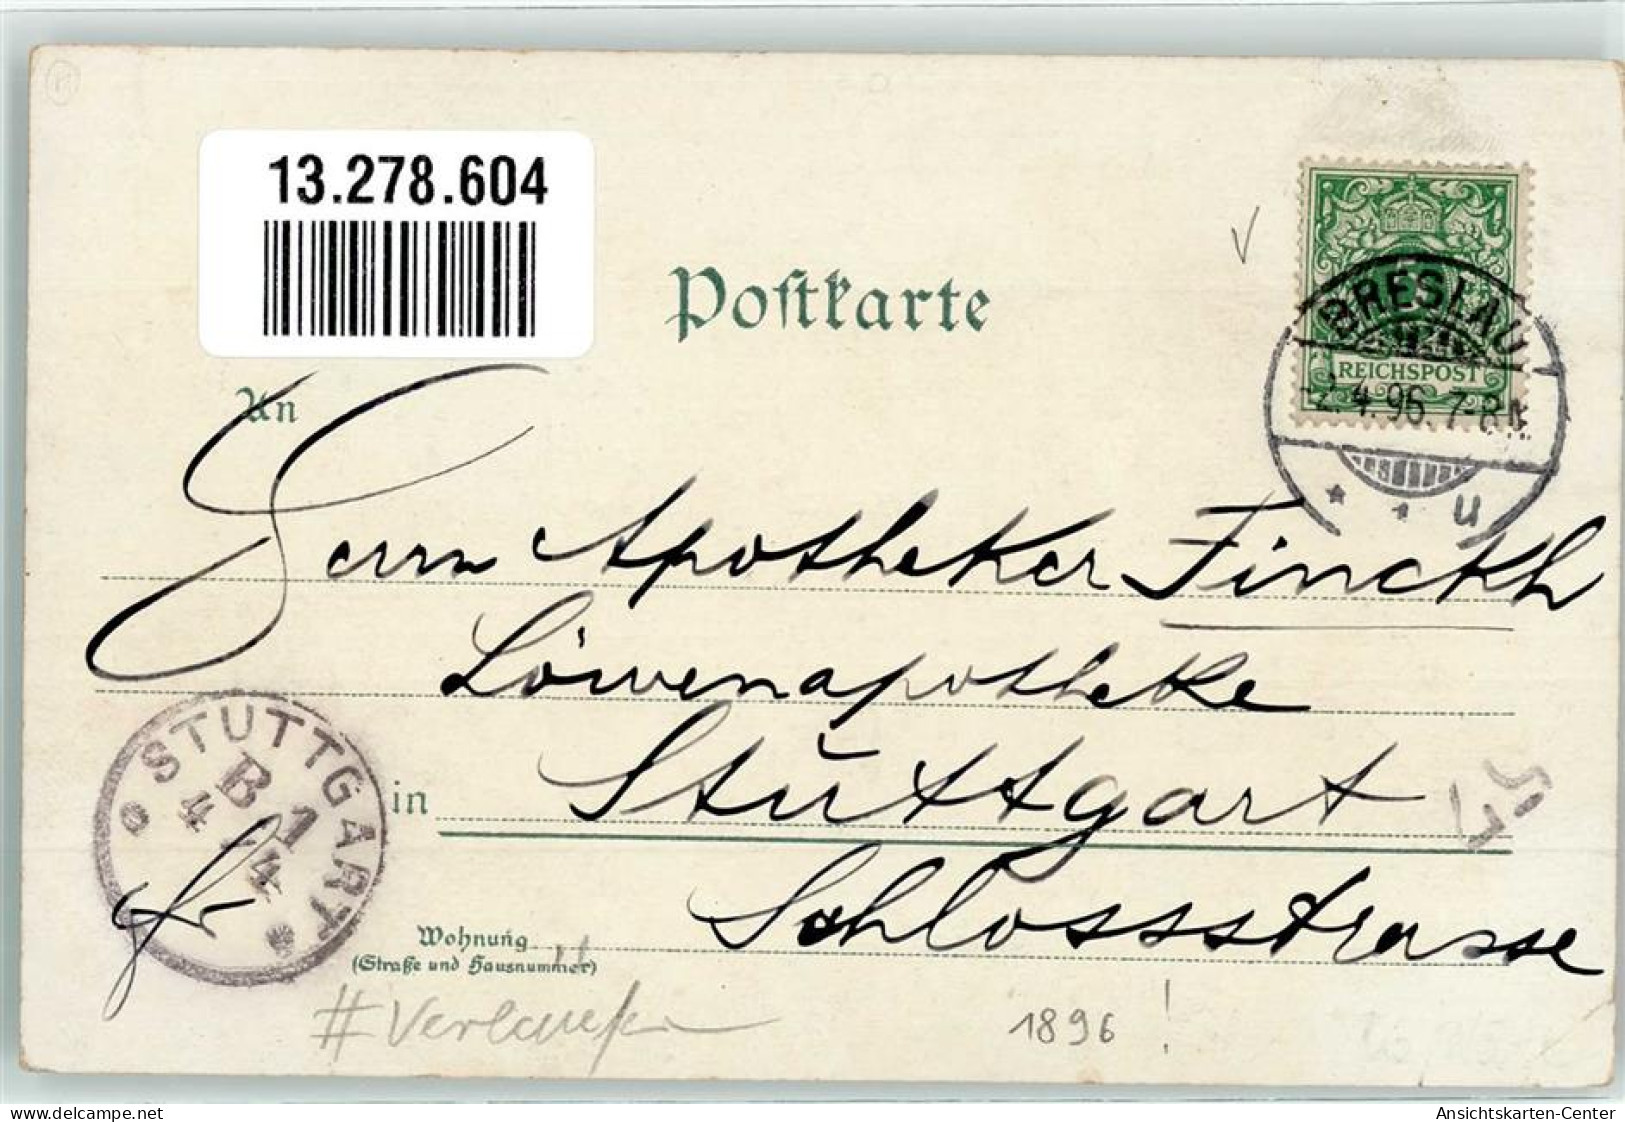 13.278.604
Postkarte
BRESLAU 1
REICHSPOST
2.4.96.7-8N.
* 1 u
An
Herrn Apotheker Finckh
Löwenapotheke
in Stuttgart
Schlossstrasse
STUTTGART
B 1
4 4
Wohnung
(Straße und Hausnummer)
1896 !
Ansichtskarten-Center